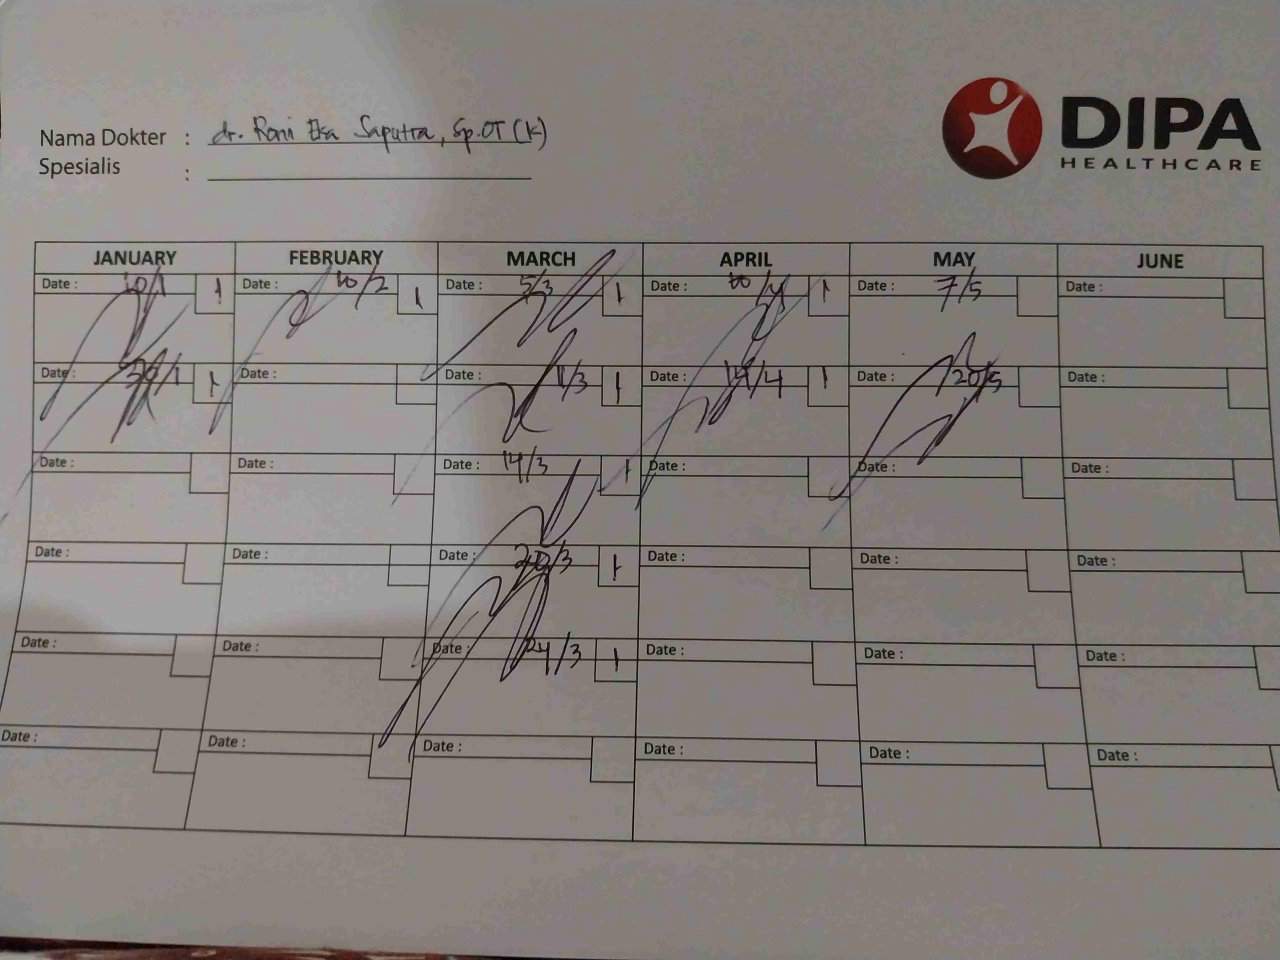 DIPA
HEALTHCARE
Nama Dokter : dr. Roni Eka Saputra, Sp.OT (K)
Spesialis :
JANUARY FEBRUARY MARCH APRIL MAY JUNE
Date : 10/1 1 Date : 10/2 1 Date : 5/3 1 Date : 10/4 1 Date : 7/5 Date :
Date : /1 1 Date : Date : 11/3 1 Date : 14/4 1 Date : 20/5 Date :
Date : Date : Date : 14/3 1 Date : Date : Date :
Date : Date : Date : 20/3 1 Date : Date : Date :
Date : Date : Date : 24/3 1 Date : Date : Date :
Date : Date : Date : Date : Date : Date :